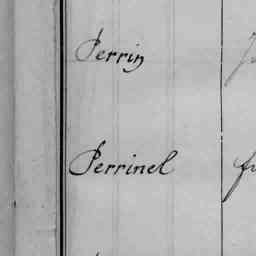 Perrin
Perrinel